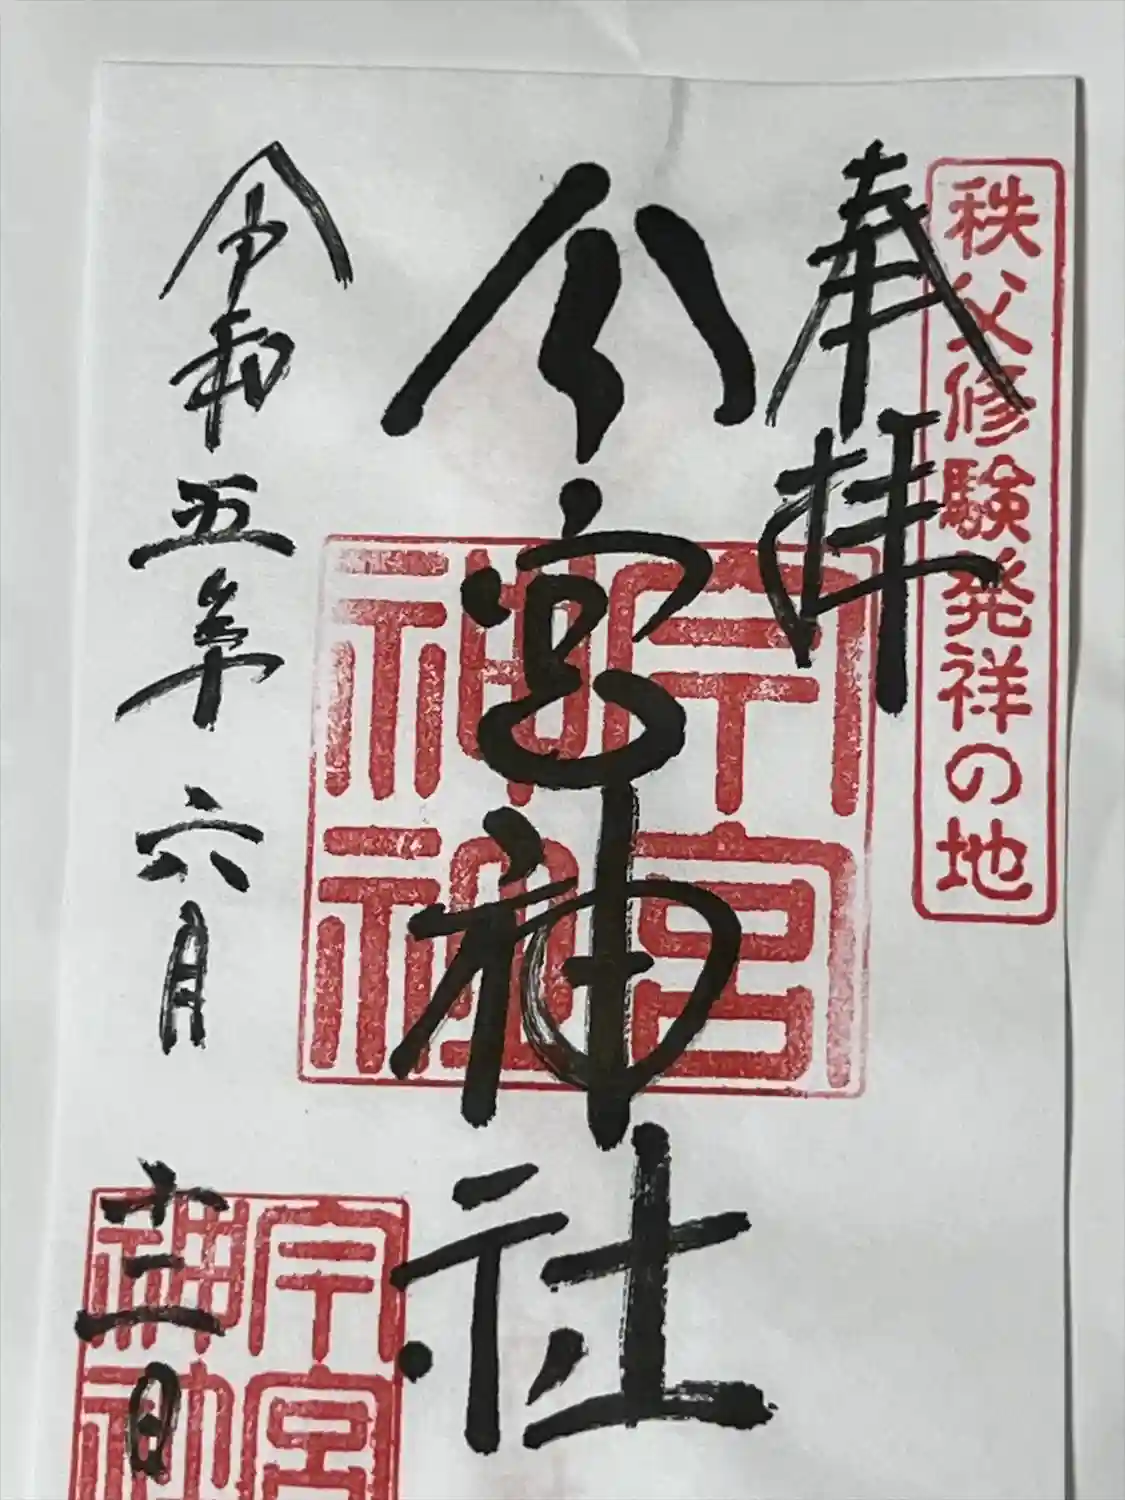 秩父修験発祥の地
奉拝
今宮神社
今宮
神社
令和五年六月十二日